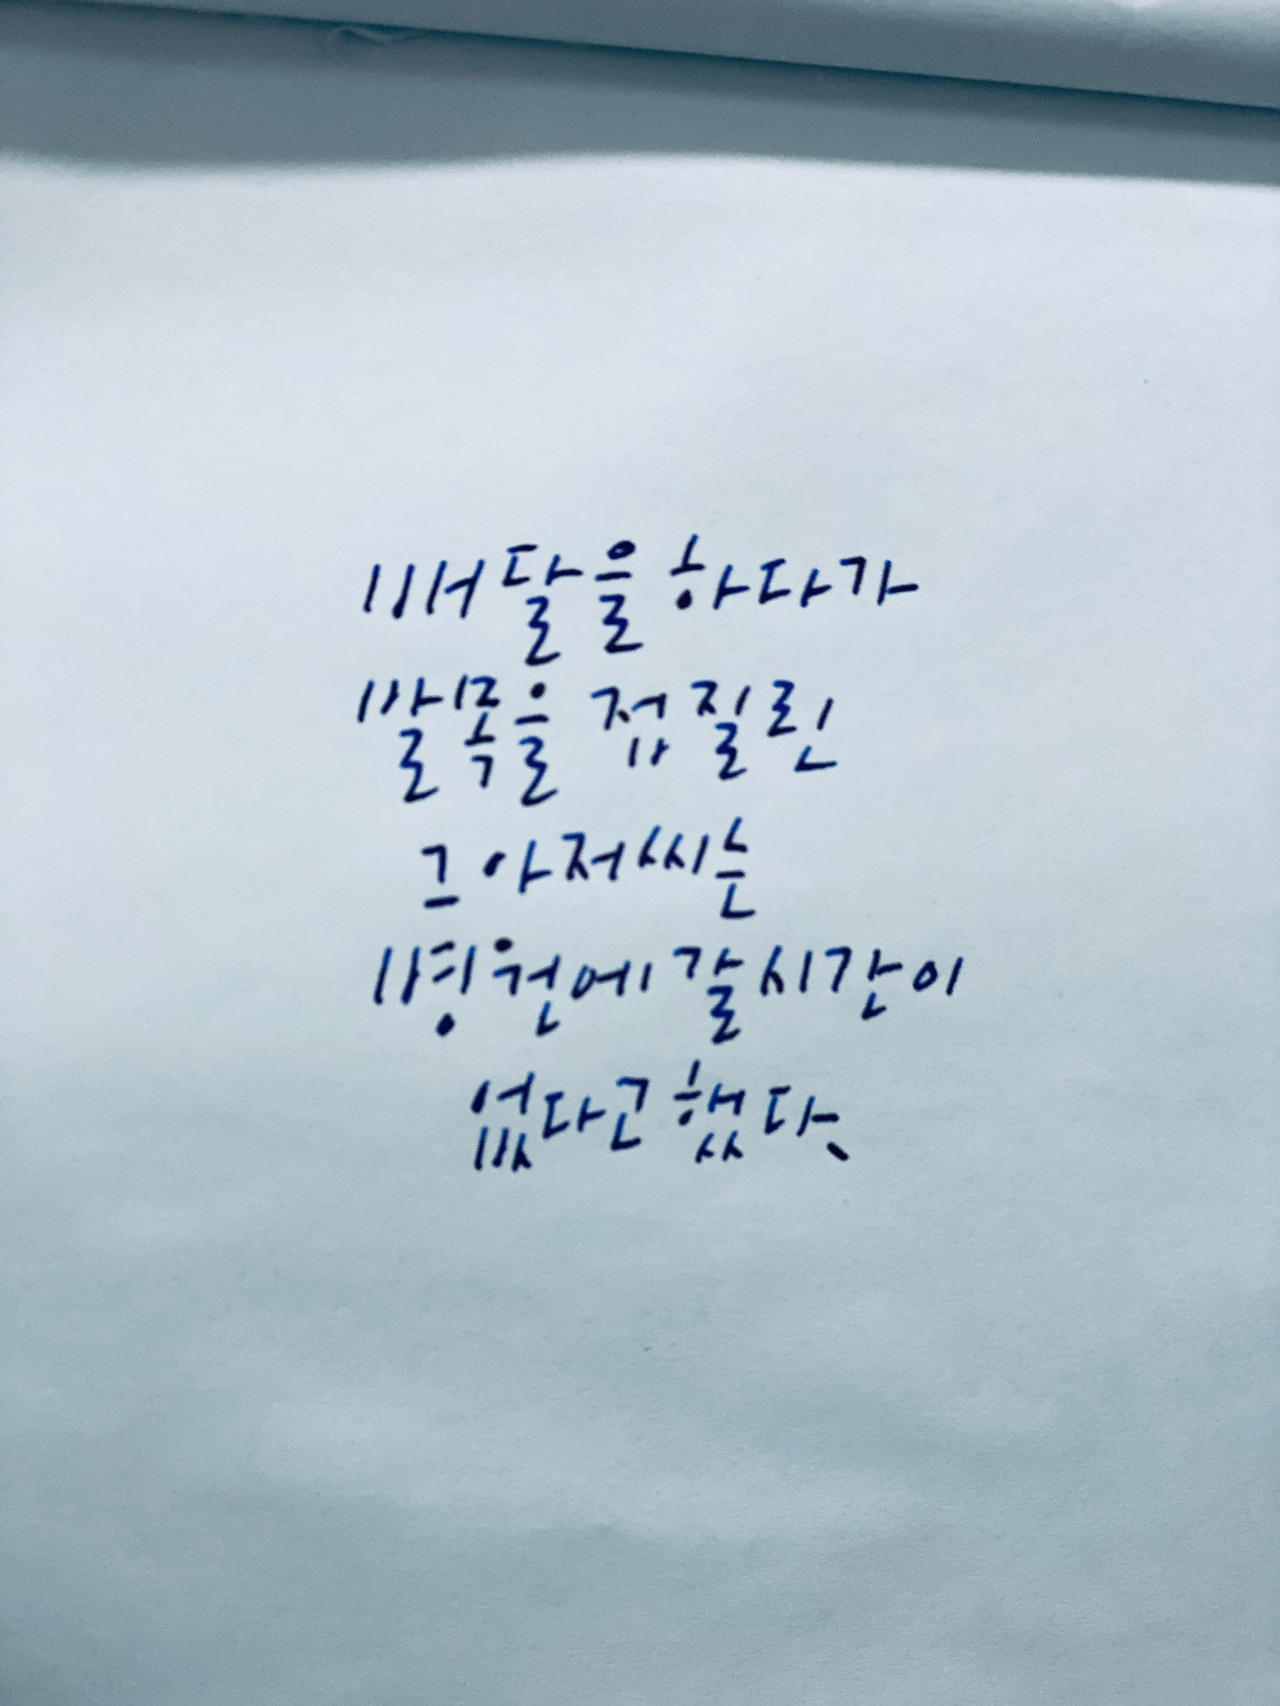 배달을 하다가
발목을 접질린
그 아저씨는
병원에 갈 시간이
없다고 했다.